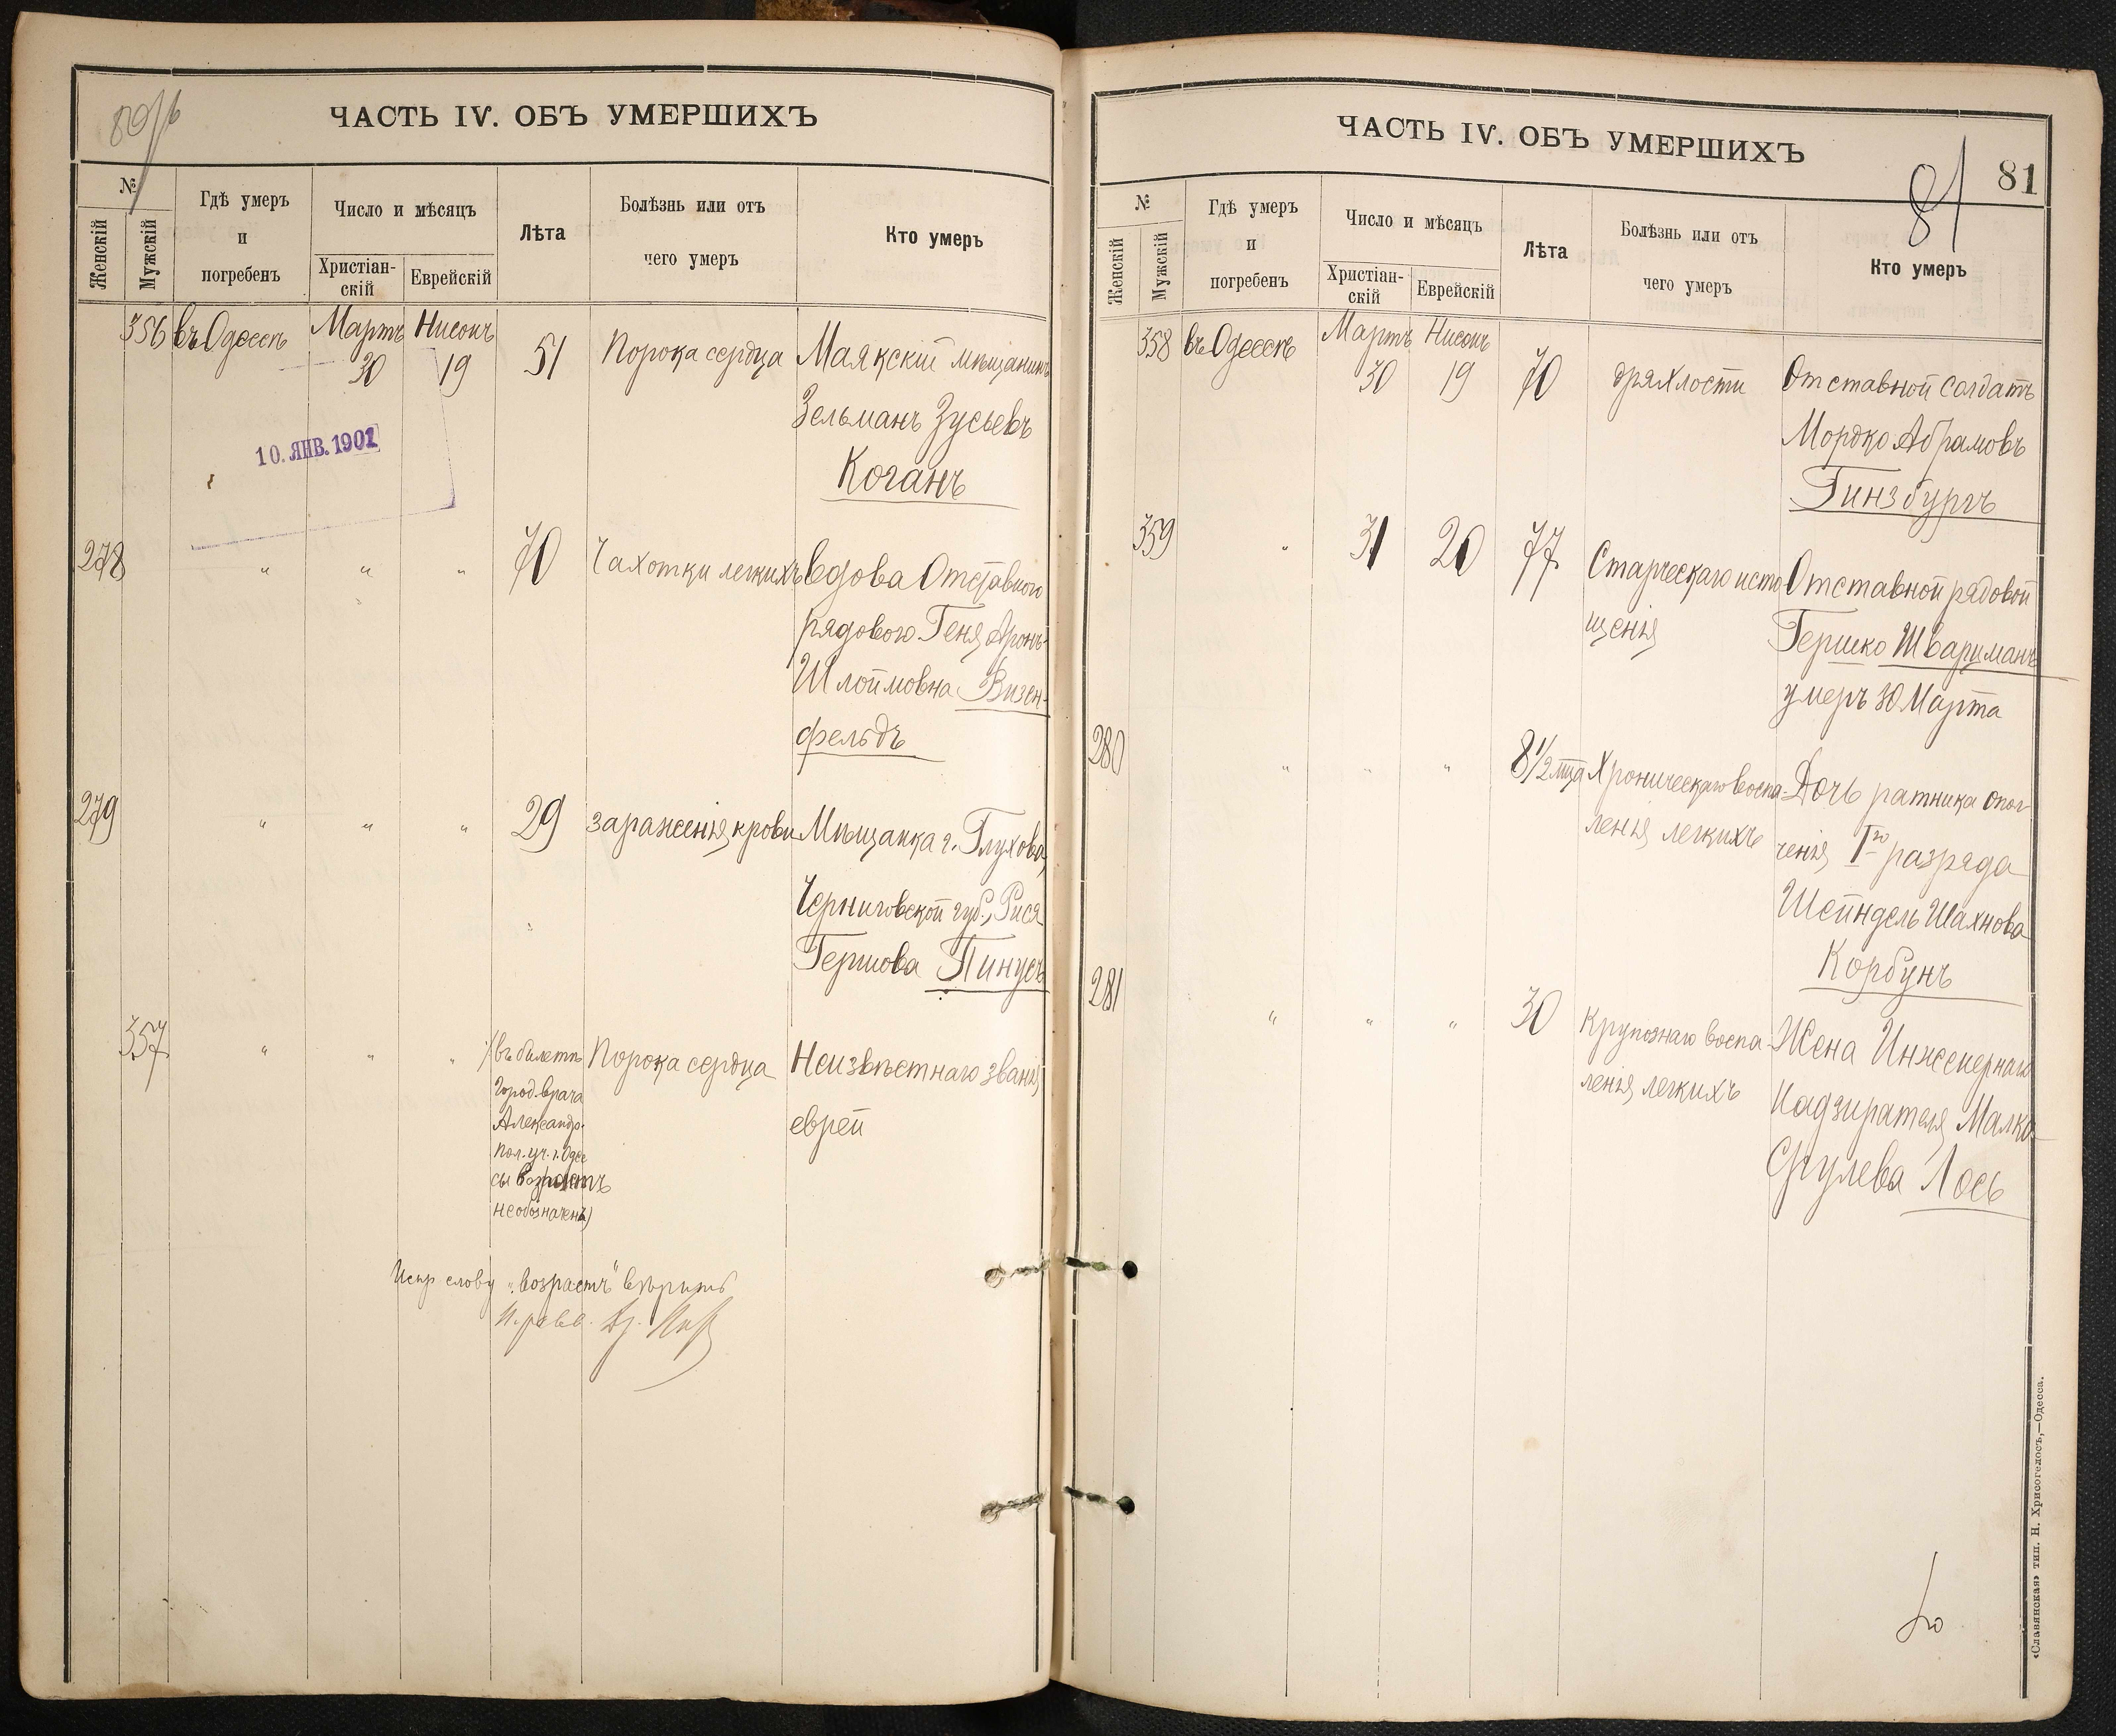 80/б
ЧАСТЬ IV. ОБЪ УМЕРШИХЪ
№
Женскій
Мужскій
Гдѣ умеръ
и
погребенъ
Число и мѣсяцъ
Христіан-
скій
Еврейскій
Лѣта
Болѣзнь или отъ
чего умеръ
Кто умеръ
356 въ Одессѣ Мартъ Нисонъ
30 19 51 Порока сердца Маякскій мѣщанинъ
Зельманъ Зусьевъ
Коганъ
10. ЯНВ. 1901
278 " " " 70 Чахотки легкихъ Вдова Отставного
рядового Геня Аронъ-
Шлоймовна Визен-
фельдъ
279 " " " 29 Зараженія крови Мѣщанка г. Глухова,
Черниговской губ., Рися
Гершова Пинусъ
357 " " " (въ билетѣ Порока сердца Неизвѣстнаго званія
Город. врача
еврей
Александр.
пол. уч. г. Одес
сы возрастъ
не обозначенъ)
Испр слову „возрастъ" вѣрить
ЧАСТЬ IV. ОБЪ УМЕРШИХЪ
81
81
№
Женскій
Мужскій
Гдѣ умеръ
и
погребенъ
Число и мѣсяцъ
Христіан-
скій
Еврейскій
Лѣта
Болѣзнь или отъ
чего умеръ
Кто умеръ
358 въ Одессѣ Мартъ Нисонъ
30 19 70 дряхлости Отставной солдатъ
Мордко Абрамовъ
Гинзбургъ
359 " 31 20 77 Старческаго исто Отставной рядовой
щенія Гершко Шварцманъ
умеръ 30 Марта
280 " " " 8 1/2 мца Хроническаго воспа- Дочь ратника опол-
ленія легкихъ ченія I го разряда
Шейндель Шахнова
Корбунъ
281 " " " 30 Крупознаго воспа- Жена Инженернаго
ленія легкихъ Надзирателя Малка
Сруlева Лось
«Славянская» тип. Н. Хрисогелосъ,—Одесса.